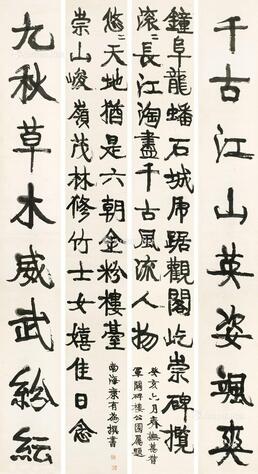 千古江山英姿颯爽
鐘阜龍蟠石城虎踞觀閣屹崇碑攬
滾〻長江淘盡千古風流人物
癸亥六月齊撫督
軍闢碑樓公園屬題
崇山峻嶺茂林修竹士女嬉佳日念
悠〻天地猶是六朝金粉樓臺
南海康有為撰書
九秋草木威武紛紜